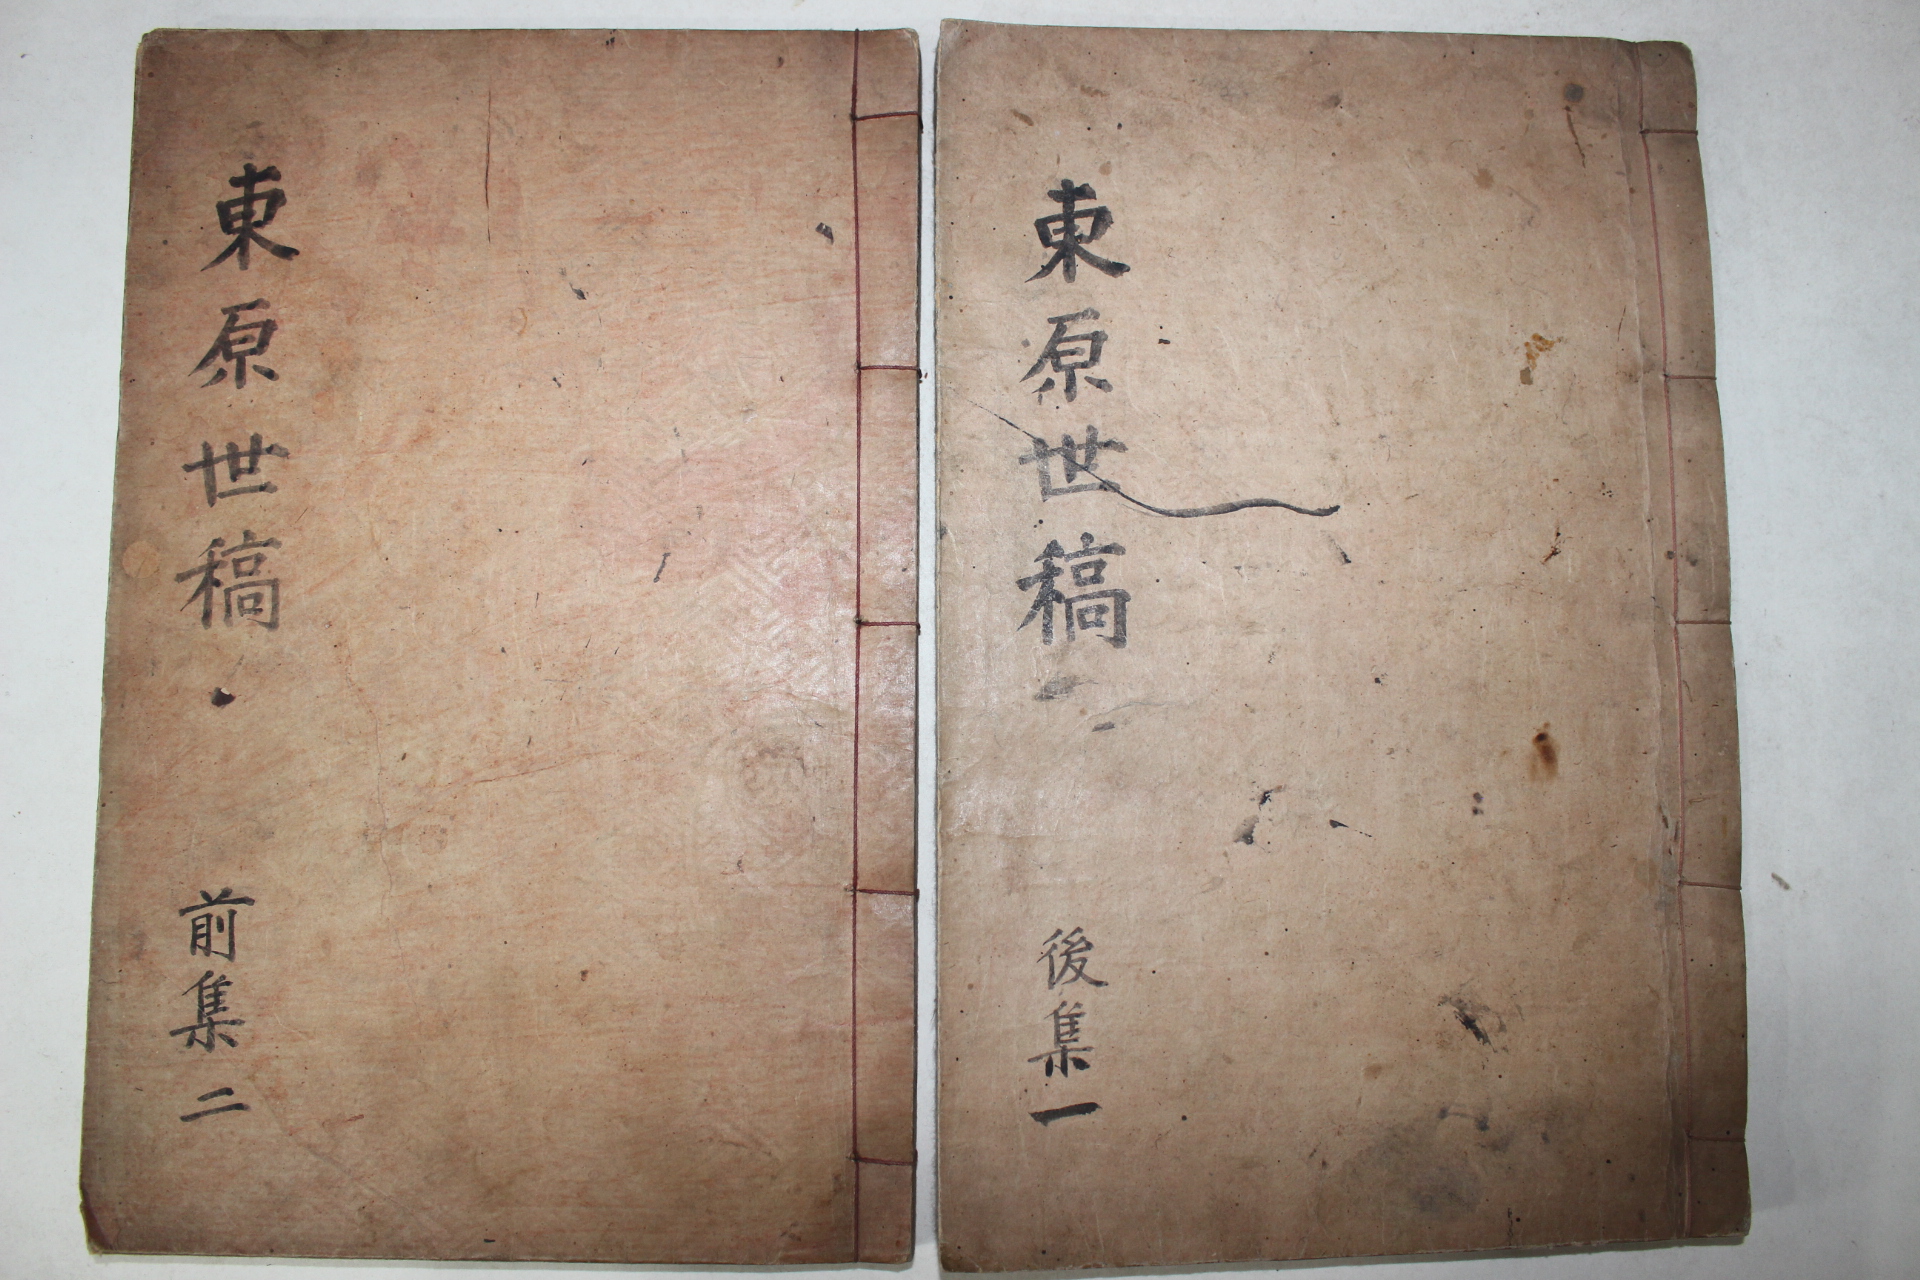 東原世稿
前集二
東原世稿
後集一